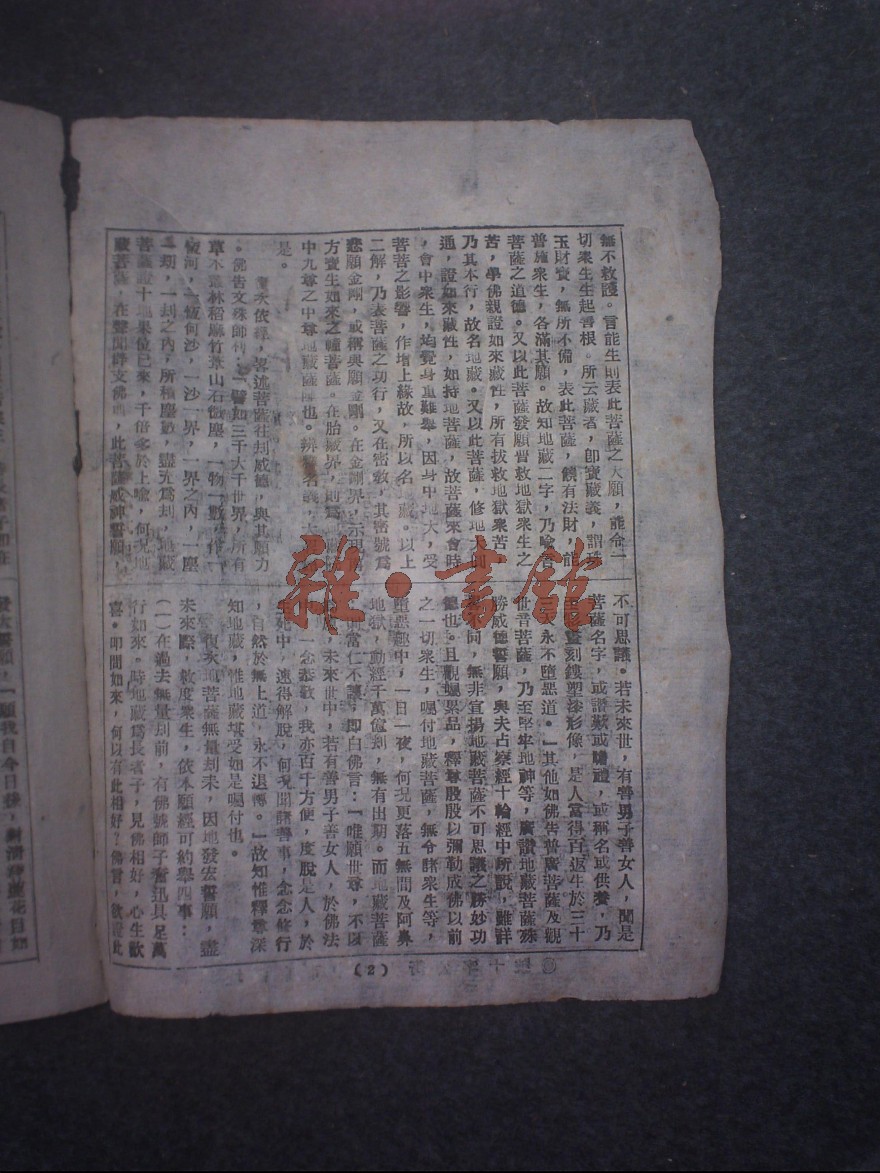 無不救護。言能生則表此菩薩之大願，能令一
切衆生生起善根。所云藏者，卽寶藏義，謂珠
玉財寶，無所不備，表此菩薩，饒有法財，能
普施衆生，各滿其願。故知地藏二字，乃喻
菩薩之道德。又以此菩薩發願冒救地獄衆生之
苦，學佛親證如來藏性，所有拔救地獄衆苦
乃其本行，故名地藏。又以此菩薩，修地大
通，證如來藏性，如持地菩薩，故菩薩來會時
，會中衆生，均覺身重難舉，因身中地大，受
菩薩之影響，作增上緣故，所以名地藏。以上
二解，乃表菩薩之功行，又在密敎，其密號爲
悲願金剛，或稱與願金剛。在金剛界，示現
方寶生如來之幢菩薩。在胎藏界，則爲
中九尊之中尊地藏薩也。辨
是。
次依經，畧述菩薩往劫威德，與其願力
。佛告文殊師利：「譬如三千大千世界，所有
草木叢林稻麻竹葦山石微塵，一物一數，作一
恆河，一恆河沙，一沙一界，一界之內，一塵
一刧，一刧之內，所積塵數，盡充爲刧，地藏
菩薩證十地果位已來，千倍多於上喻，何况地
藏菩薩，在聲聞辟支佛地，此菩薩威神誓願，
不可思議。若未來世，有善男子善女人，聞是
菩薩名字，或讚歎或瞻禮，或稱名或供養，乃
至彩畫刻鏤塑漆形像，是人當得百返生於三十
三天永不墮惡道。」其他如佛告普廣菩薩及觀
世音菩薩，乃至堅牢地神等，廣讚地藏菩薩殊
勝威德誓願，與夫占察經十輪經中所說，雖詳
同，無非宣揚地藏菩薩不可思議之勝妙功
德也。且觀囑累品，釋尊殷殷以彌勒成佛以前
之一切衆生，囑付地藏菩薩，無令諸衆生等，
墮惡趣中，一日一夜，何况更落五無間及阿鼻
地獄，動經千萬億刧，無有出期。而地藏菩薩
當仁不讓，卽白佛言：「唯願世尊，不以
未來世中，若有善男子善女人，於佛法
中一念恭敬，我亦百千方便，度脫是人，於
生死中，速得解脫，何况聞諸善事，念念修行
，自然於無上道，永不退轉。」故知惟釋尊深
知地藏，惟地藏堪受如是囑付也。
復次地菩薩無量刧來，因地發宏誓願，盡
未來際，救度衆生，依本願經可約舉四事：
（一）在過去無量刧前，有佛號師子奮迅具足萬
行如來。時地藏爲長者子，見佛相好，心生歡
喜。叩問如來，何以有此相好？佛言，欲證此
(2)
發大誓願，「願我自今日後，對淸淨蓮花目如
雜·書館